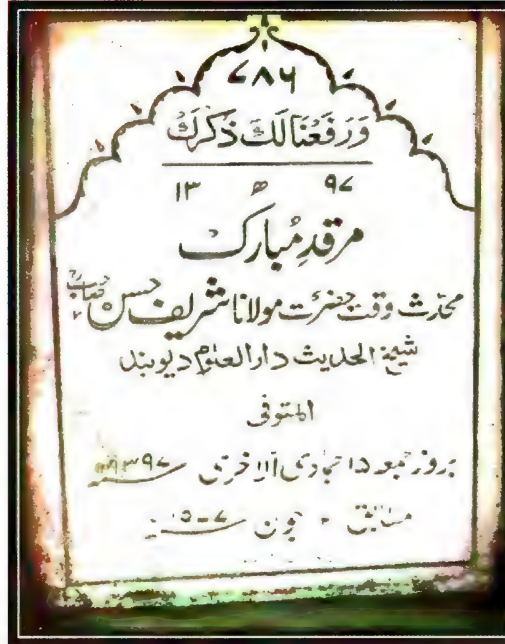 ۷۸۶
وَرَفَعْنَا لَكَ ذِکْرَكَ
۱۳ ھ ۹۷
مرقدِ مُبارک
محدّث وقت حضرت مولانا شریف حسن صاحبؒ
شیخ الحدیث دارالعلوم دیوبند
المتوفی
بروز جمعہ ۱۵ جمادی الاخریٰ ۱۳۹۷ھ
مطابق جون